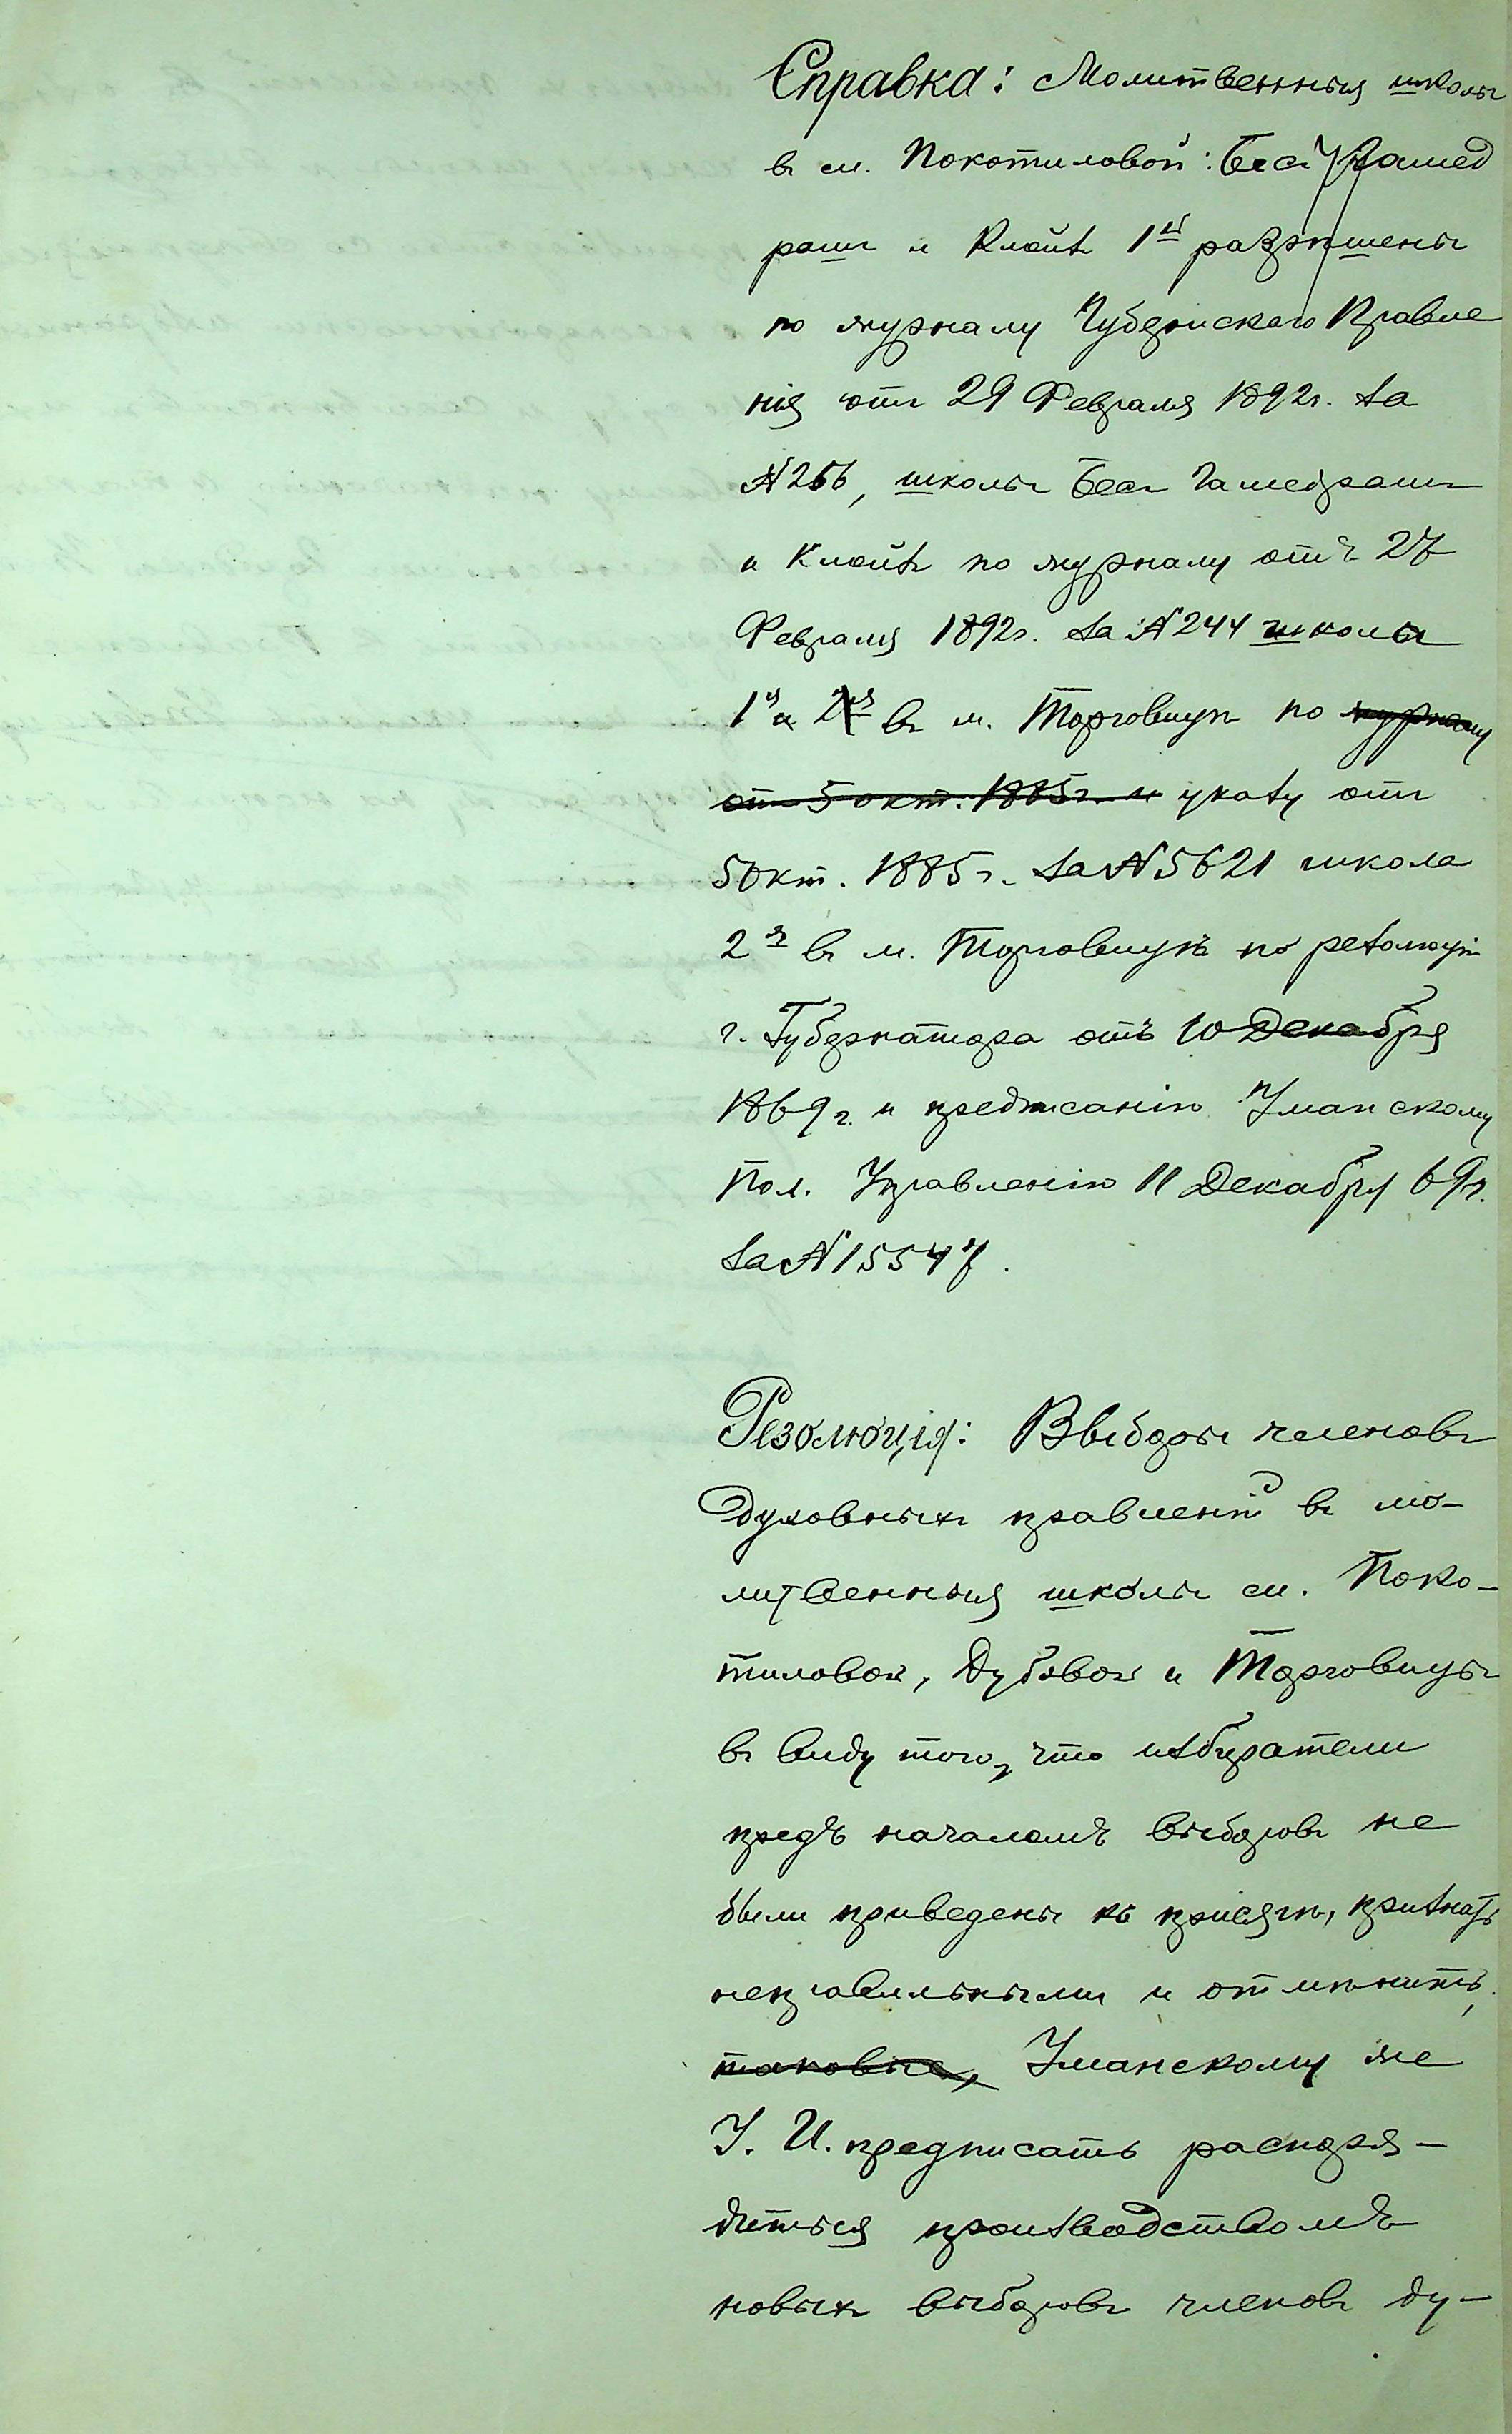 Справка: Молитвенныя школы
в м. Покотиловой: Бесъ Гамед
рашъ и Клойзъ 1й разрѣшены
по журналу Губернскаго Правле
нія отъ 29 Февраля 1892г. за
№256, школы Бесъ Гамедрашъ
и Клойзъ по журналу отъ 27
Февраля 1892г. за №244 школа
1я и 2я въ м. Торговицѣ по журналу
отъ 5 окт. 1885г. и указу отъ
5 Окт. 1885г. за №5621 школа
2я въ м. Торговицѣ по резолюціи
г. Губернатора отъ 10 Декабря
1869г. и предписанію Уманскому
Пол. Управленію 11 Декабря 69г.
за №15547.
Резолюція: Выборы членовъ
Духовныхъ правленій въ мо-
литвенныя школы м. Поко-
тиловой, Дубовой и Торговицы
въ виду того, что избиратели
предъ началомъ выборовъ не
были приведены къ присягѣ, признать
неправильными и отмѣнить,
таковые, Уманскому же
У. И. предписать распоря-
диться производствомъ
новыхъ выборовъ членовъ ду-